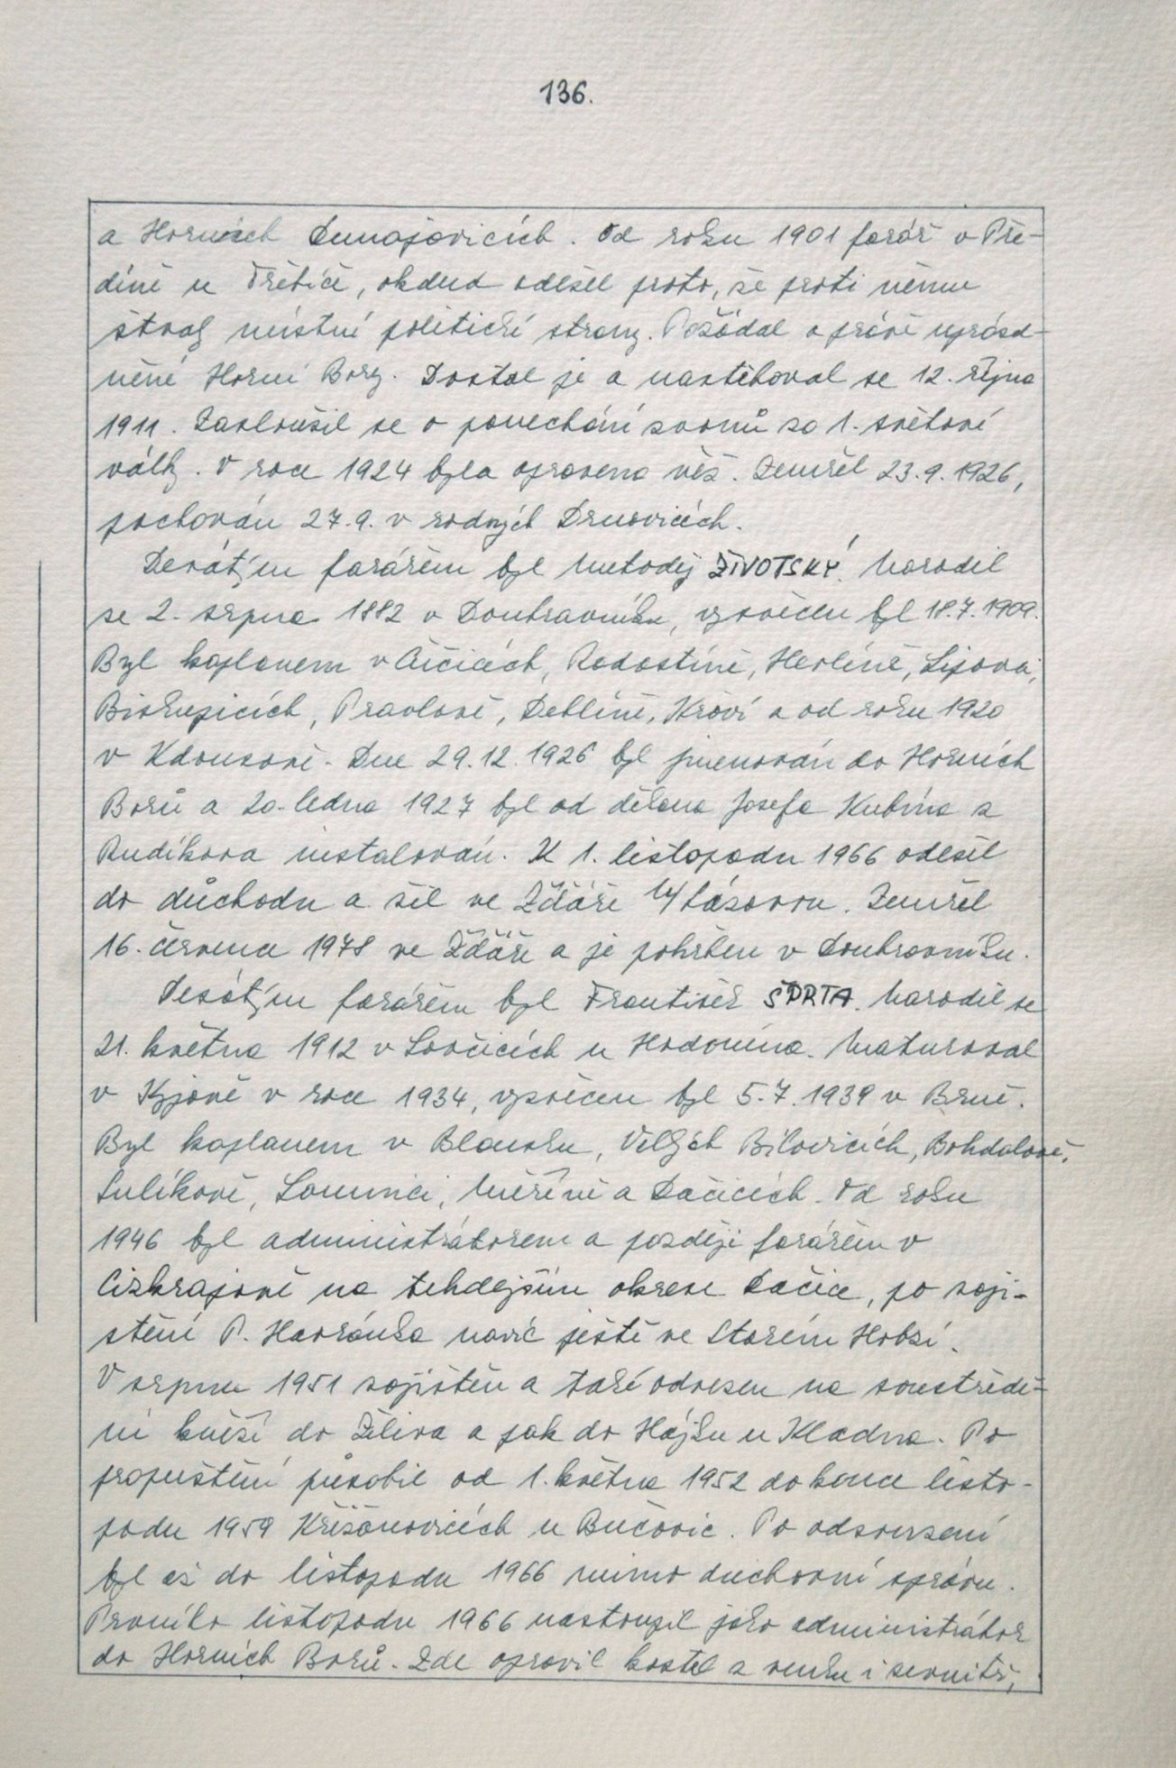 136.
a Horních Dunajovicích. Od roku 1901 farář v Pře-
díně u Třebíče, odkud odešel proto, že proti němu
štvaly místní politické strany. Požádal o právě uprázd-
něné Horní Bory. Dostal je a nastěhoval se 12. října
1911. Zasloužil se o ponechání zvonů za 1. světové
války. V roce 1924 byla opravena věž. Zemřel 23.9.1926,
pochován 27.9. v rodných Drnovicích.
Devátým farářem byl Metoděj ŽIVOTSKÝ. Narodil
se 2. srpna 1882 v Doubravníku, vysvěcen byl 18.7.1909.
Byl kaplanem v Číčicách, Radostíně, Heršpicích, Lipová,
Biskupicích, Pravlově, Deblíně, Křoví a od roku 1920
v Kdousově. Dne 29.12.1926 byl jmenován do Horních
Borů a 20. ledna 1927 byl od děkana Josefa Kubína z
Rudíkova instalován. K 1. listopadu 1966 odešel
do důchodu a žil ve Žďáře n/Sázavou. Zemřel
16. června 1978 ve Žďáře a je pohřben v Doubravníku.
Desátým farářem byl František ŠPRTA. Narodil se
21. května 1912 v Lovčicích u Hodonína. Maturoval
v Kyjově v roce 1934, vysvěcen byl 5.7.1939 v Brně.
Byl kaplanem v Blansku, Velkých Bílovicích, Bohdalově,
Sulíkově, Lomnici, Měříně a Dačicích. Od roku
1946 byl administrátorem a později farářem v
Cizkrajově na tehdejším okrese Dačice, po zaji-
štění P. Havránka navíc ještě ve Starém Hobzí.
V srpnu 1951 zajištěn a také odvezen na soustředě-
ní kněží do Želiva a pak do Hájku u Kladna. Po
propuštění působil od 1. května 1952 do konce listo-
padu 1959 Křižanovicích u Bučovic. Po odsouzení
byl až do listopadu 1966 mimo duchovní správu.
Prvního listopadu 1966 nastoupil jako administrátor
do Horních Borů. Zde opravil kostel z venku i zevnitř,